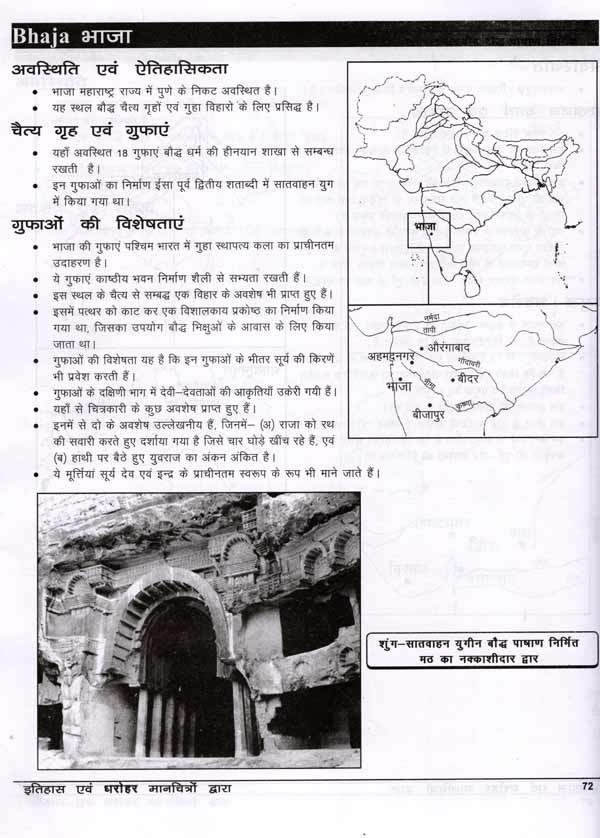 Bhaja भाजा
अवस्थिति एवं ऐतिहासिकता
• भाजा महाराष्ट्र राज्य में पुणे के निकट अवस्थित है।
• यह स्थल बौद्ध चैत्य गृहों एवं गुहा विहारो के लिए प्रसिद्ध है।
चैत्य गृह एवं गुफाएं
• यहाँ अवस्थित 18 गुफाएं बौद्ध धर्म की हीनयान शाखा से सम्बन्ध
रखती है।
• इन गुफाओं का निर्माण ईसा पूर्व द्वितीय शताब्दी में सातवाहन युग
में किया गया था।
गुफाओं की विशेषताएं
• भाजा की गुफाएं पश्चिम भारत में गुहा स्थापत्य कला का प्राचीनतम
उदाहरण है।
• ये गुफाएं काष्ठीय भवन निर्माण शैली से सभ्यता रखती हैं।
• इस स्थल के चैत्य से सम्बद्ध एक विहार के अवशेष भी प्राप्त हुए हैं।
• इसमें पत्थर को काट कर एक विशालकाय प्रकोष्ठ का निर्माण किया
गया था, जिसका उपयोग बौद्ध भिक्षुओं के आवास के लिए किया
जाता था।
• गुफाओं की विशेषता यह है कि इन गुफाओं के भीतर सूर्य की किरणें
भी प्रवेश करती हैं।
• गुफाओं के दक्षिणी भाग में देवी-देवताओं की आकृतियाँ उकेरी गयी हैं।
• यहाँ से चित्रकारी के कुछ अवशेष प्राप्त हुए हैं।
• इनमें से दो के अवशेष उल्लेखनीय हैं, जिनमें– (अ) राजा को रथ
की सवारी करते हुए दर्शाया गया है जिसे चार घोड़े खींच रहे हैं, एवं
(ब) हाथी पर बैठे हुए युवराज का अंकन अंकित है।
• ये मूर्त्तियां सूर्य देव एवं इन्द्र के प्राचीनतम स्वरूप के रूप भी माने जाते हैं।
भाजा
नर्मदा
तापी
औरंगाबाद
अहमदनगर
गोदावरी
बीदर
भाजा
भीमा
बीजापुर
कृष्णा
शुंग–सातवाहन युगीन बौद्ध पाषाण निर्मित
मठ का नक्काशीदार द्वार
इतिहास एवं धरोहर मानचित्रों द्वारा
72